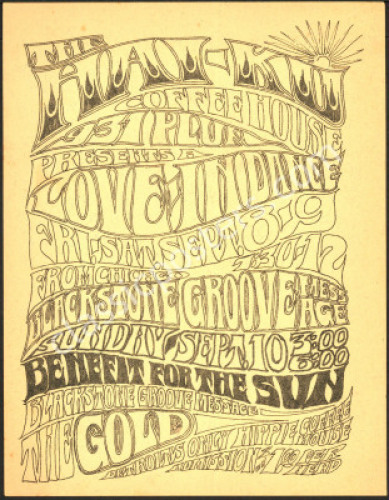 THE
HAI-KU
COFFEE HOUSE
931 PLUM
PRESENTS A
LOVE-IN DANCE
FRI. SAT. SEPT. 8-9
7:30-12
FROM CHICAGO
BLACKSTONE GROOVE MESSAGE
SUNDAY SEPT. 10 3:00
6:00
BENEFIT FOR THE SUN
BLACKSTONE GROOVE MESSAGE
THE GOLD
DETROIT'S ONLY HIPPIE COFFEE HOUSE
ADMISSION